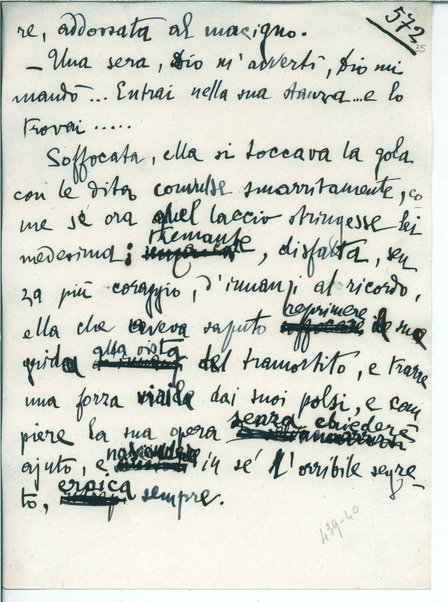 572
25
re, addossata al macigno.
– Una sera, Dio m'avvertì, Dio mi
mandò... Entrai nella sua stanza... e lo
trovai.....
Soffocata, ella si toccava la gola
con le dita convulse smarritamente, co
me se ora quel laccio stringesse lei
tremante
medesima; disfatta, sen
za più coraggio, d'innanzi al ricordo,
reprimere
ella che aveva saputo le sue
alla vista
grida del tramortito, e trarre
una forza virile dai suoi polsi, e com
piere la sua opera senza chiedere
nascondere
ajuto, e in sé l'orribile segre-
eroica
to, sempre.
439-40